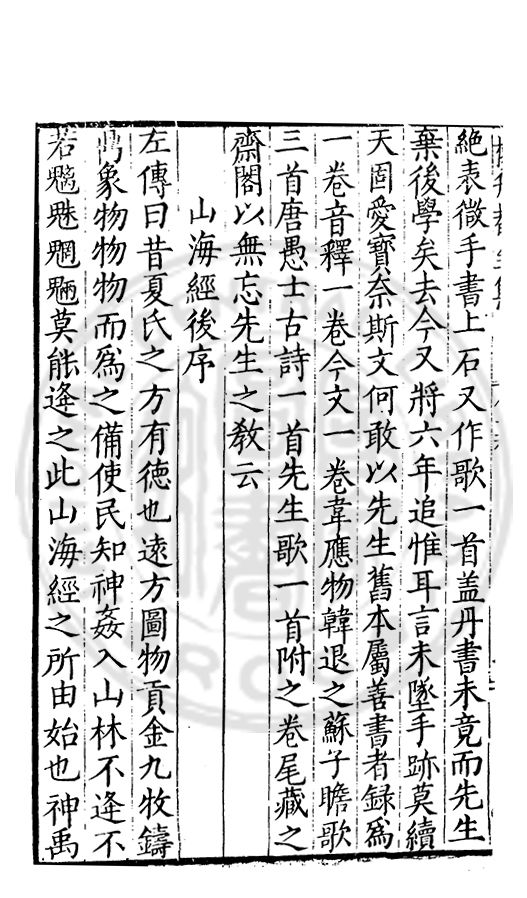 絶表微手書上石又作歌一首盖丹書未竟而先生
棄後學矣去今又將六年追惟耳言未墜手跡莫續
天固愛寳奈斯文何敢以先生舊本屬善書者録為
一卷音釋一卷今文一卷韋應物韓退之蘇子瞻歌
三首唐愚士古詩一首先生歌一首附之卷尾藏之
齋閣以無忘先生之敎云
山海經後序
左傳曰昔夏氏之方有德也遠方圖物貢金九牧鑄
鼎象物物物而爲之備使民知神姦入山林不逢不
若魑魅魍魎莫能逢之此山海經之所由始也神禹